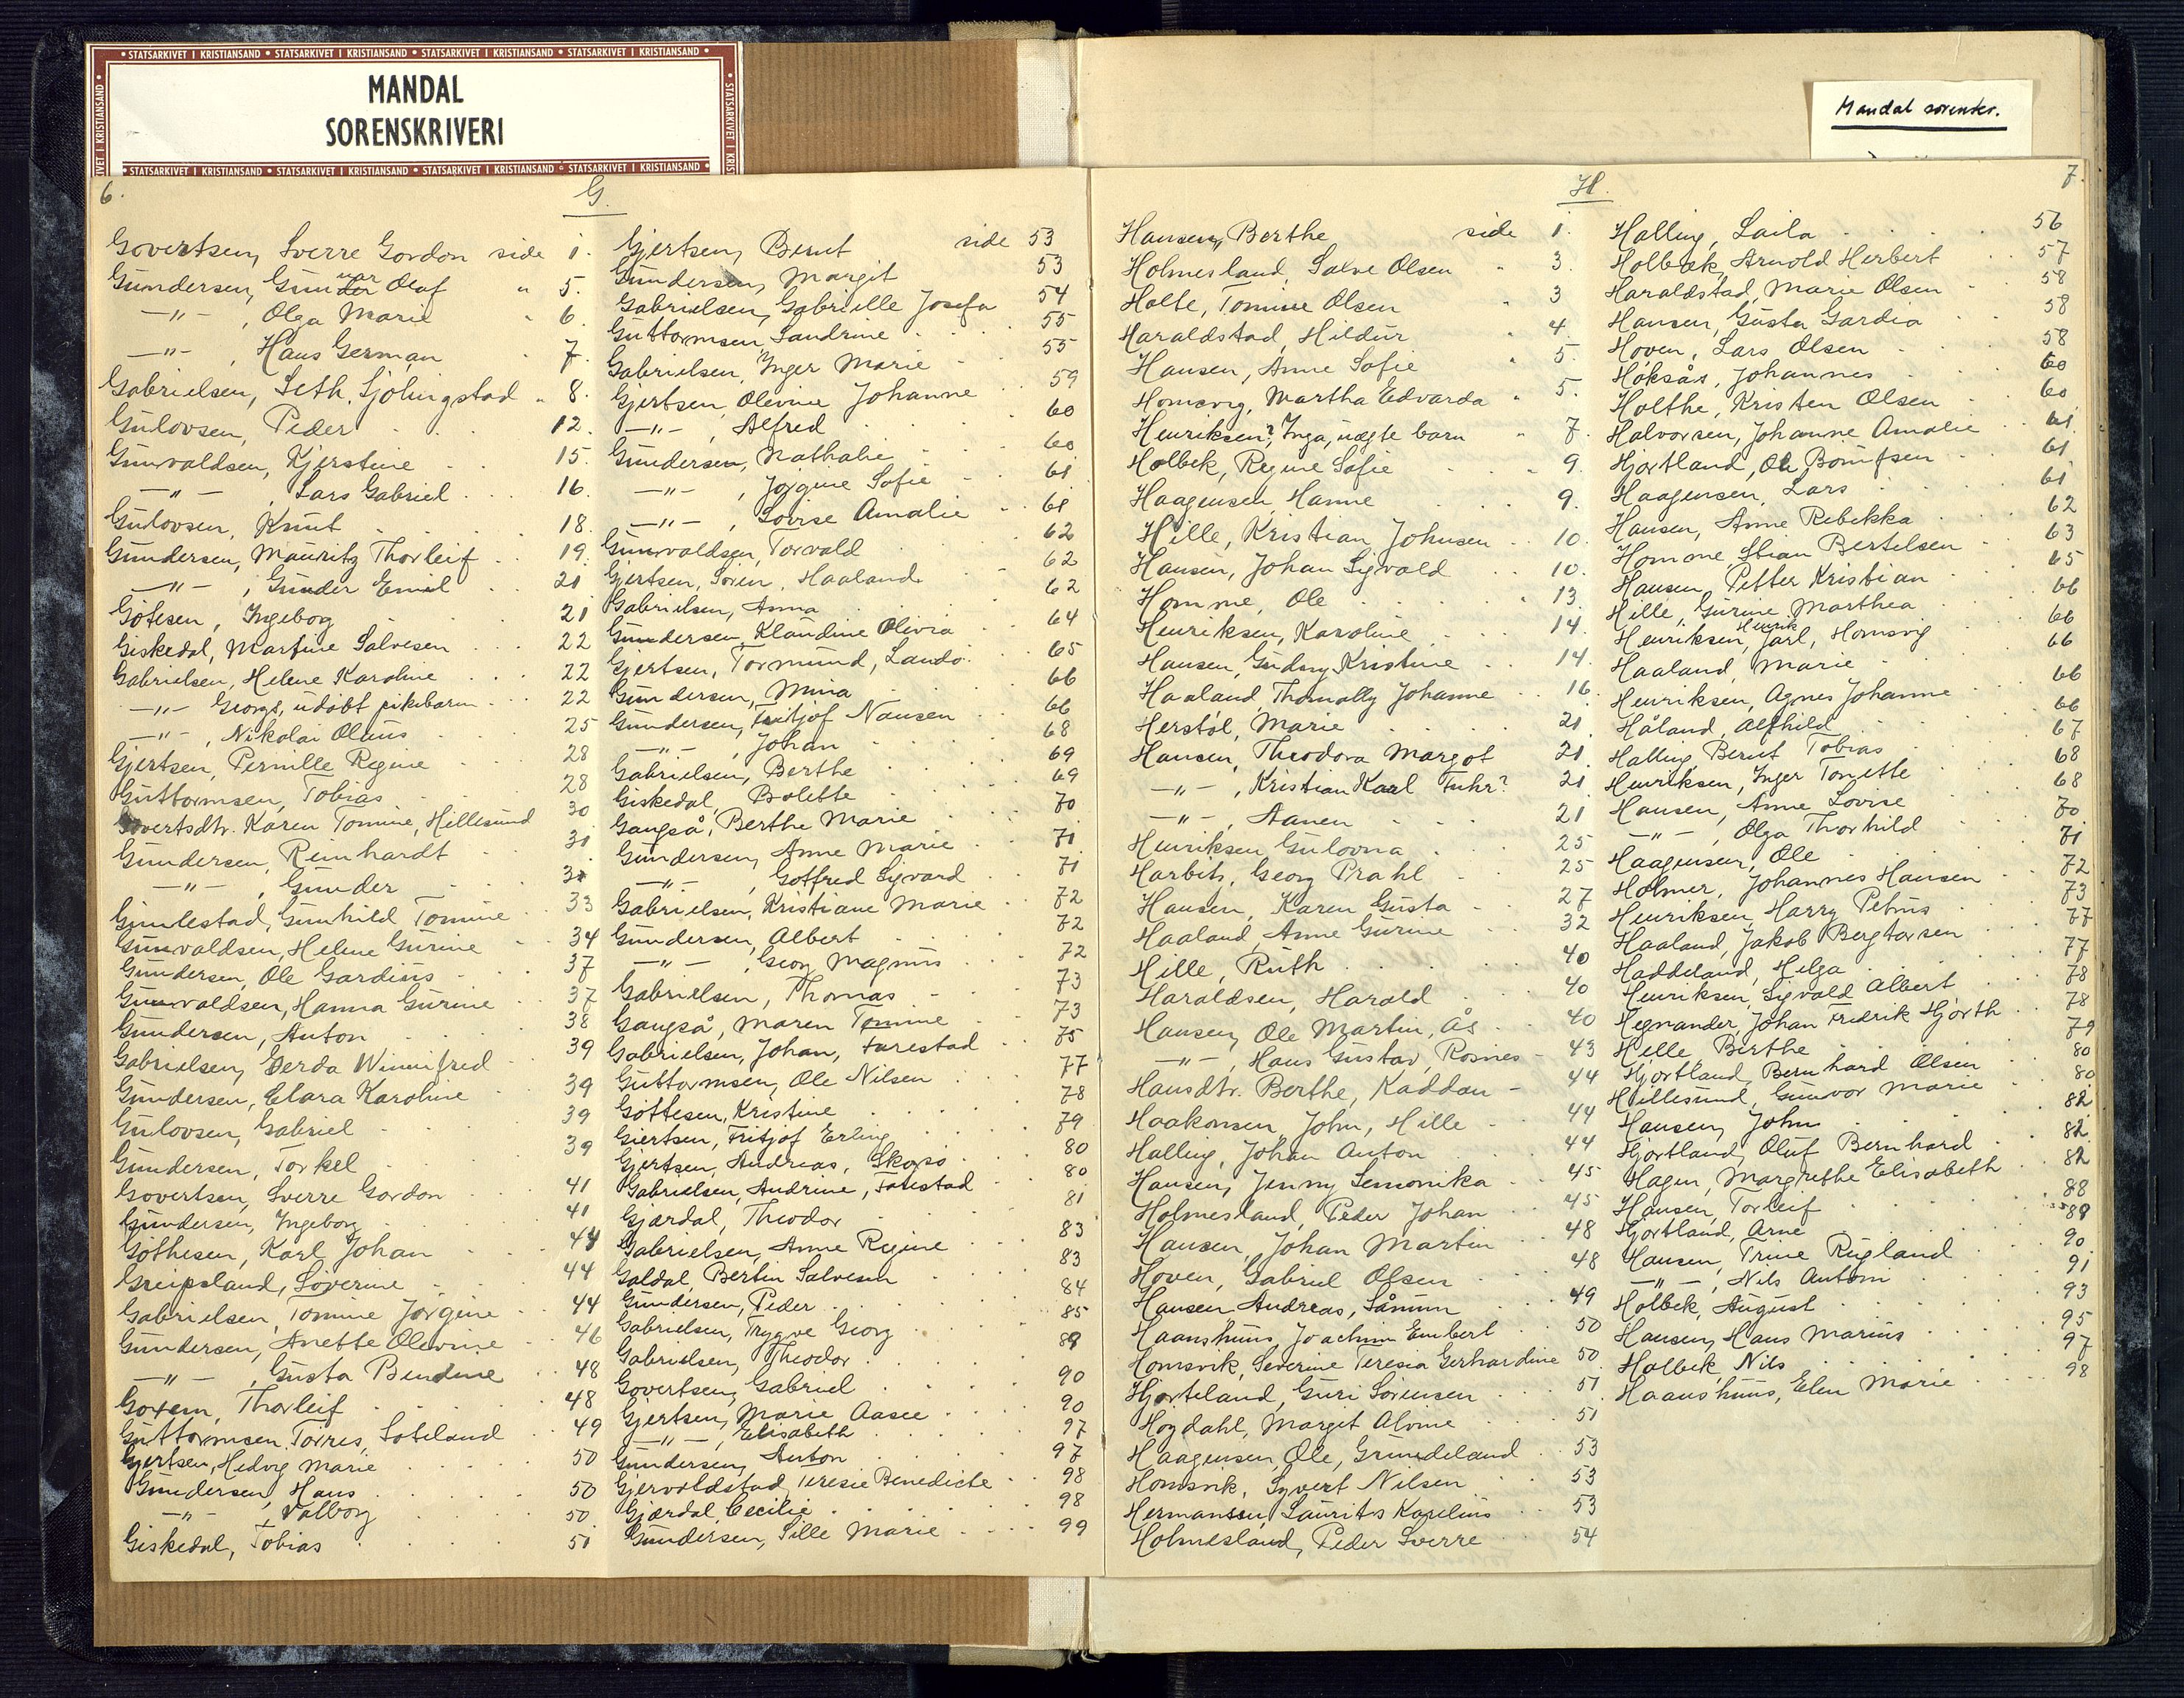 • STATSARKIVET I KRISTIANSAND • STATSARKIVET I KRISTIANSAND • STATSARKIVET I KRISTIANSAND • STATSARKIVET I KRISTIANSAND •
MANDAL
SORENSKRIVERI
STATSARKIVET I KRISTIANSAND • STATSARKIVET I KRISTIANSAND • STATSARKIVET I KRISTIANSAND • STATSARKIVET I KRISTIANSAND •
Mandal sorenskr.
6.
G.
Govertsen, Sverre Gordon side 1.
Gundersen, Gunnar Olaf " 5.
—"— , Olga Marie " 6.
—"— , Hans German 7.
Gabrielsen, Seth, Sjölingstad " 8.
Gulovsen, Peder 12.
Gunvaldsen, Kjerstine 15.
—"— , Lars Gabriel 16.
Gulovsen, Knut 18.
Gundersen, Mauritz Thorleif 19.
—"— , Gunder Emil 20
Götesen, Ingeborg 21
Giskedal, Martine Salvesen 22
Gabrielsen, Helene Karoline 22
—"— Georgs, udöbt pikebarn 22
—"— , Nikolai Olaus 25
Gjertsen, Pernille Regine 28
Guttormsen, Tobias 28
Govertsdtr. Karen Tomine, Hillesund 30
Gundersen, Reinhardt 31
—"— , Gunder 31
Gumlestad, Gunhild Tomine 33
Gunvaldsen, Helene Gurine 34
Gundersen, Ole Gardius 37
Gunvaldsen, Hanna Gurine 37
Gundersen, Anton 38
Gabrielsen, Gerda Winnifred 39
Gundersen, Clara Karoline 39
Gulovsen, Gabriel 39
Gundersen, Torkel 39
Govertsen, Sverre Gordon 41
Gundersen, Ingeborg 41
Göthesen, Karl Johan 44
Greipsland, Severine 44
Gabrielsen, Tomine Jörgine 44
Gundersen, Anette Olevine 46
—"— , Gusta Bendine 48
Gotem, Thorleif 48
Guttormsen, Torres, Soteland 49
Gjertsen, Hedvig Marie 50
Gundersen, Hans 50
—"— , Valborg 50
Giskedal, Tobias 51
Gjertsen, Bernt side 53
Gundersen, Margit 53
Gabrielsen, Gabrielle Josefa 54
Guttormsen, Sandrine 55
Gabrielsen, Inger Marie 55
Gjertsen, Olevine Johanne 59
—"— , Alfred 60
Gundersen, Nathalie 60
—"— , Jörgine Sofie 61
—"— , Lovise Amalie 61
Gunvaldsen, Torvald 62
Gjertsen, Sören, Haaland 62
Gabrielsen, Anna 62
Gundersen, Klaudine Olivia 64
Gjertsen, Tormund, Landö 65
Gundersen, Mina 66
Gundersen, Fritjof Nansen 66
—"— , Johan 68
Gabrielsen, Berthe 69
Giskedal, Bolette 69
Gangså, Berthe Marie 70
Gundersen, Anne Marie 71
—"— , Gotfred Sigvard 71
Gabrielsen, Kristiane Marie 72
Gundersen, Albert 72
—"— , Georg Magnus 72
Gabrielsen, Thomas 73
Gangså, Maren Tomine 73
Gabrielsen, Johan, Farestad 75
Guttormsen, Ole Nilsen 77
Gottesen, Kristine 78
Giertsen, Fritjof Erling 79
Gjertsen, Andreas, Skogsö 80
Gabrielsen, Andrine, Farestad 80
Gjærdal, Theodor 81
Gabrielsen, Anne Regine 83
Galdal, Bertin Salvesen 83
Gundersen, Peder 84
Gabrielsen, Trygve Georg 85
Gabrielsen, Theodor 89
Govertsen, Gabriel 90
Gjertsen, Marie Aasee 90
—"— , Elisabeth 97
Gundersen, Anton 97
Gjervoldstad, Teresie Benedicte 98
Gjærdal, Cecilie 98
Gundersen, Sille Marie 99
H.
7.
Hansen, Berthe side 1.
Holmesland, Salve Olsen " 3.
Holte, Tomine Olsen " 3
Haraldstad, Hildur " 4.
Hansen, Anne Sofie " 5.
Homsvig, Martha Edvarda " 5.
Henriksen?, Inga, uægte barn " 7.
Holbek, Regine Sofie 9.
Haagensen, Hanne 9.
Hille, Kristian Johnsen 10.
Hansen, Johan Sigvald 10.
Homme, Ole 13.
Henriksen, Karoline 14.
Hansen, Gudny Kristine 14.
Haaland, Thomally Johanne 16.
Herstöl, Marie 21
Hansen, Theodora Margot 21.
—"— , Kristian Karl Fuhr? 21
—"— , Aanen 21
Henriksen, Gulovna 25
Harbits, Georg Prahl 25
Hansen, Karen Gusta 27
Haaland, Anne Gurine 32
Hille, Ruth 40
Haraldsen, Harald 40
Hansen, Ole Martin, Ås 40
—"— , Hans Gustav, Rosnes 43
Hansdtr. Berthe, Kaddan 44
Haakonsen, John, Hille 44
Halling, Johan Anton 44
Hansen, Jenny Semonika 45
Holmesland, Peder Johan 45
Hansen, Johan Martin 48
Hoven, Gabriel Olsen 48
Hansen Andreas, Sånum 49
Haanshuus, Joachim Embert 50
Homsvik, Severine Teresia Gerhardine 50
Hjorteland, Guri Sörensen 51
Högdahl, Margit Alvine 51
Haagensen, Ole, Grundeland 53
Homsvik, Syvert Nilsen 53
Hermansen, Laurits Karelius 53
Holmesland, Peder Sverre 54
Halling, Laila 56
Holbæk, Arnold Herbert 57
Haraldstad, Marie Olsen 58
Hansen, Gusta Gardia 58
Hoven, Lars Olsen 58
Höksås, Johannes 60
Holthe, Kristen Olsen 60
Halvorsen, Johanne Amalie 61
Hjortland, Ole Bomfsen 61
Haagensen, Lars 61
Hansen, Anne Rebekka 62
Homme, Stian Bertelsen 63
Hansen, Petter Kristian 65
Hille, Gurine Marthea 66
Henriksen, Henrik Jarl, Homsvig 66
Haaland, Marie 66
Henriksen, Agnes Johanne 66
Håland, Alfhild 66
Halling, Bernt Tobias 67
Henriksen, Inger Tonette 68
Hansen, Anne Lovise 68
—"— , Olga Thorhild 70
Haagensen, Ole 71
Holmer, Johannes Hansen 72
Henriksen, Harry Petrus 73
Haaland, Jakob Bergtorsen 77
Haddeland, Helga 77
Henriksen, Sigvald Albert 78
Hegnander, Johan Fredrik Hjorth 78
Hille, Birthe 79
Hjortland, Bernhard Olsen 80
Hillesund, Gunvor Marie 80
Hansen, John 82
Hjortland, Oluf Bernhard 82
Hagen, Margrethe Elisabeth 82
Hansen, Torleif 88
Hjortland, Arne 89
Hansen, Trine Rugland 90
—"— , Nils Antoni 91
Holbek, August 93
Hansen, Hans Marius 95
Holbek, Nils 97
Haanshuus, Elen Marie 98